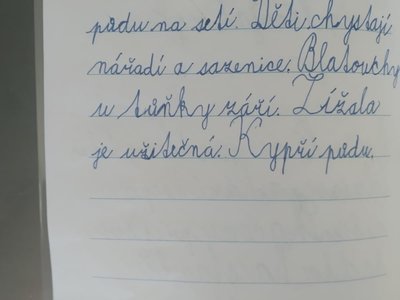 půdu na setí. Děti chystají
nářadí a sazenice. Blatouchy
u tůňky září. Žížala
je užitečná. Kypří půdu.